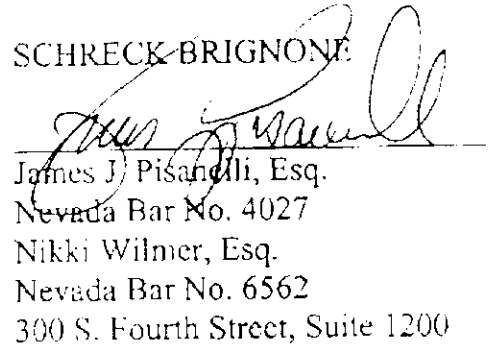 SCHRECK BRIGNONE
James J. Pisanelli, Esq.
Nevada Bar No. 4027
Nikki Wilmer, Esq.
Nevada Bar No. 6562
300 S. Fourth Street, Suite 1200